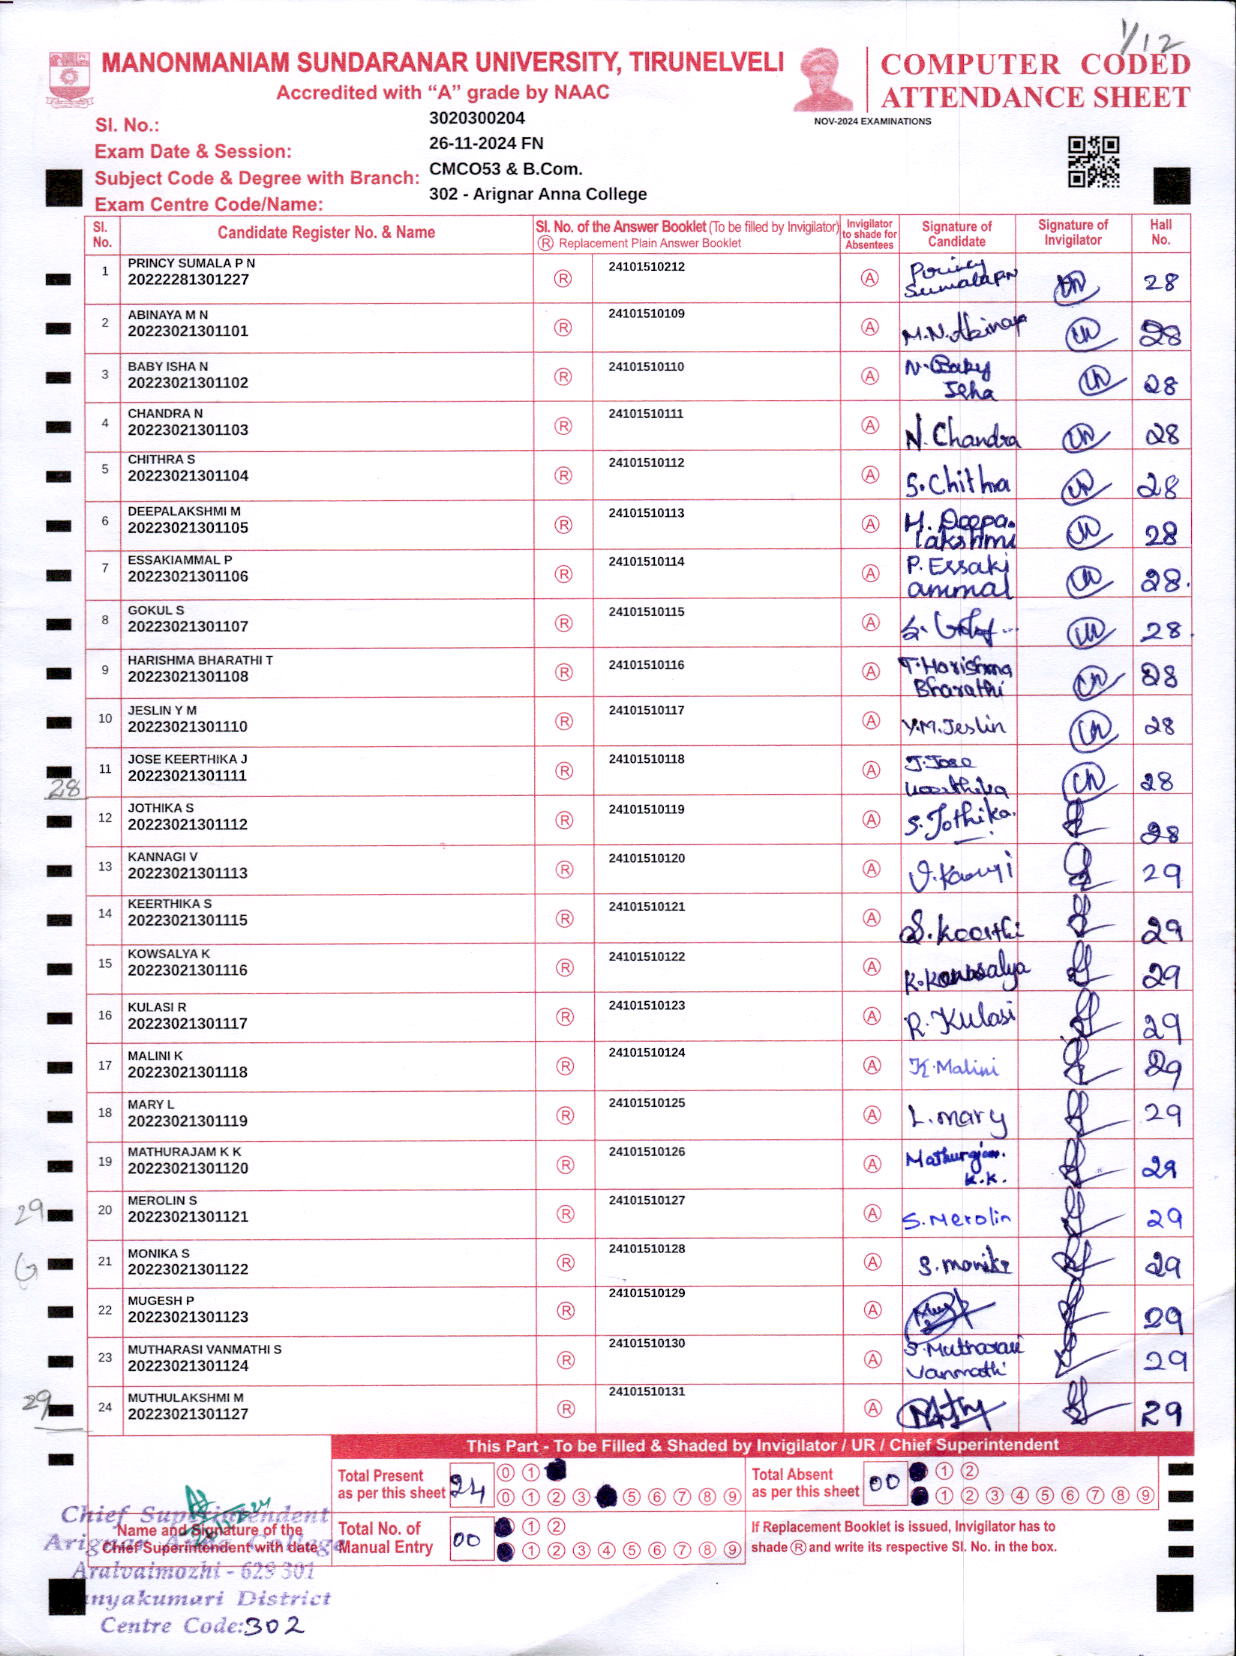 1/12
MANONMANIAM SUNDARANAR UNIVERSITY, TIRUNELVELI
Accredited with “A” grade by NAAC
COMPUTER CODED
ATTENDANCE SHEET
NOV-2024 EXAMINATIONS
Sl. No.: 3020300204
Exam Date & Session: 26-11-2024 FN
Subject Code & Degree with Branch: CMCO53 & B.Com.
Exam Centre Code/Name: 302 - Arignar Anna College
Sl. No. Candidate Register No. & Name Sl. No. of the Answer Booklet (To be filled by Invigilator) Ⓡ Replacement Plain Answer Booklet Invigilator to shade for Absentees Signature of Candidate Signature of Invigilator Hall No.
1 PRINCY SUMALA P N 20222281301227 Ⓡ 24101510212 Ⓐ Princy Sumala PN 28
2 ABINAYA M N 20223021301101 Ⓡ 24101510109 Ⓐ M.N.Abinaya 28
3 BABY ISHA N 20223021301102 Ⓡ 24101510110 Ⓐ N.Baby Isha 28
4 CHANDRA N 20223021301103 Ⓡ 24101510111 Ⓐ N.Chandra 28
5 CHITHRA S 20223021301104 Ⓡ 24101510112 Ⓐ S.Chithra 28
6 DEEPALAKSHMI M 20223021301105 Ⓡ 24101510113 Ⓐ M.Deepa lakshmi 28
7 ESSAKIAMMAL P 20223021301106 Ⓡ 24101510114 Ⓐ P.Essaki ammal 28.
8 GOKUL S 20223021301107 Ⓡ 24101510115 Ⓐ 28.
9 HARISHMA BHARATHI T 20223021301108 Ⓡ 24101510116 Ⓐ T.Harishma Bharathi 28
10 JESLIN Y M 20223021301110 Ⓡ 24101510117 Ⓐ Y.M.Jeslin 28
11 JOSE KEERTHIKA J 20223021301111 Ⓡ 24101510118 Ⓐ J.Jose Keerthika 28
28
12 JOTHIKA S 20223021301112 Ⓡ 24101510119 Ⓐ S.Jothika. 28
13 KANNAGI V 20223021301113 Ⓡ 24101510120 Ⓐ 29
14 KEERTHIKA S 20223021301115 Ⓡ 24101510121 Ⓐ S.Keerthi 29
15 KOWSALYA K 20223021301116 Ⓡ 24101510122 Ⓐ K.Kowsalya 29
16 KULASI R 20223021301117 Ⓡ 24101510123 Ⓐ R.Kulasi 29
17 MALINI K 20223021301118 Ⓡ 24101510124 Ⓐ K.Malini 29
18 MARY L 20223021301119 Ⓡ 24101510125 Ⓐ L.mary 29
19 MATHURAJAM K K 20223021301120 Ⓡ 24101510126 Ⓐ Mathurajam. K.K. 29
29 20 MEROLIN S 20223021301121 Ⓡ 24101510127 Ⓐ S.Merolin 29
21 MONIKA S 20223021301122 Ⓡ 24101510128 Ⓐ S.monika 29
22 MUGESH P 20223021301123 Ⓡ 24101510129 Ⓐ 29
23 MUTHARASI VANMATHI S 20223021301124 Ⓡ 24101510130 Ⓐ S.Mutharasi Vanmathi 29
29 24 MUTHULAKSHMI M 20223021301127 Ⓡ 24101510131 Ⓐ 29
This Part - To be Filled & Shaded by Invigilator / UR / Chief Superintendent
Total Present as per this sheet 24 0 1
0 1 2 3 5 6 7 8 9
Total Absent as per this sheet 00 1 2
1 2 3 4 5 6 7 8 9
Total No. of Manual Entry 00 1 2
1 2 3 4 5 6 7 8 9
If Replacement Booklet is issued, Invigilator has to shade Ⓡ and write its respective Sl. No. in the box.
Name and Signature of the
Chief Superintendent with date
Chief Superintendent
Arignar Anna College
Aralvaimozhi - 629 301
nyakumari District
Centre Code:302